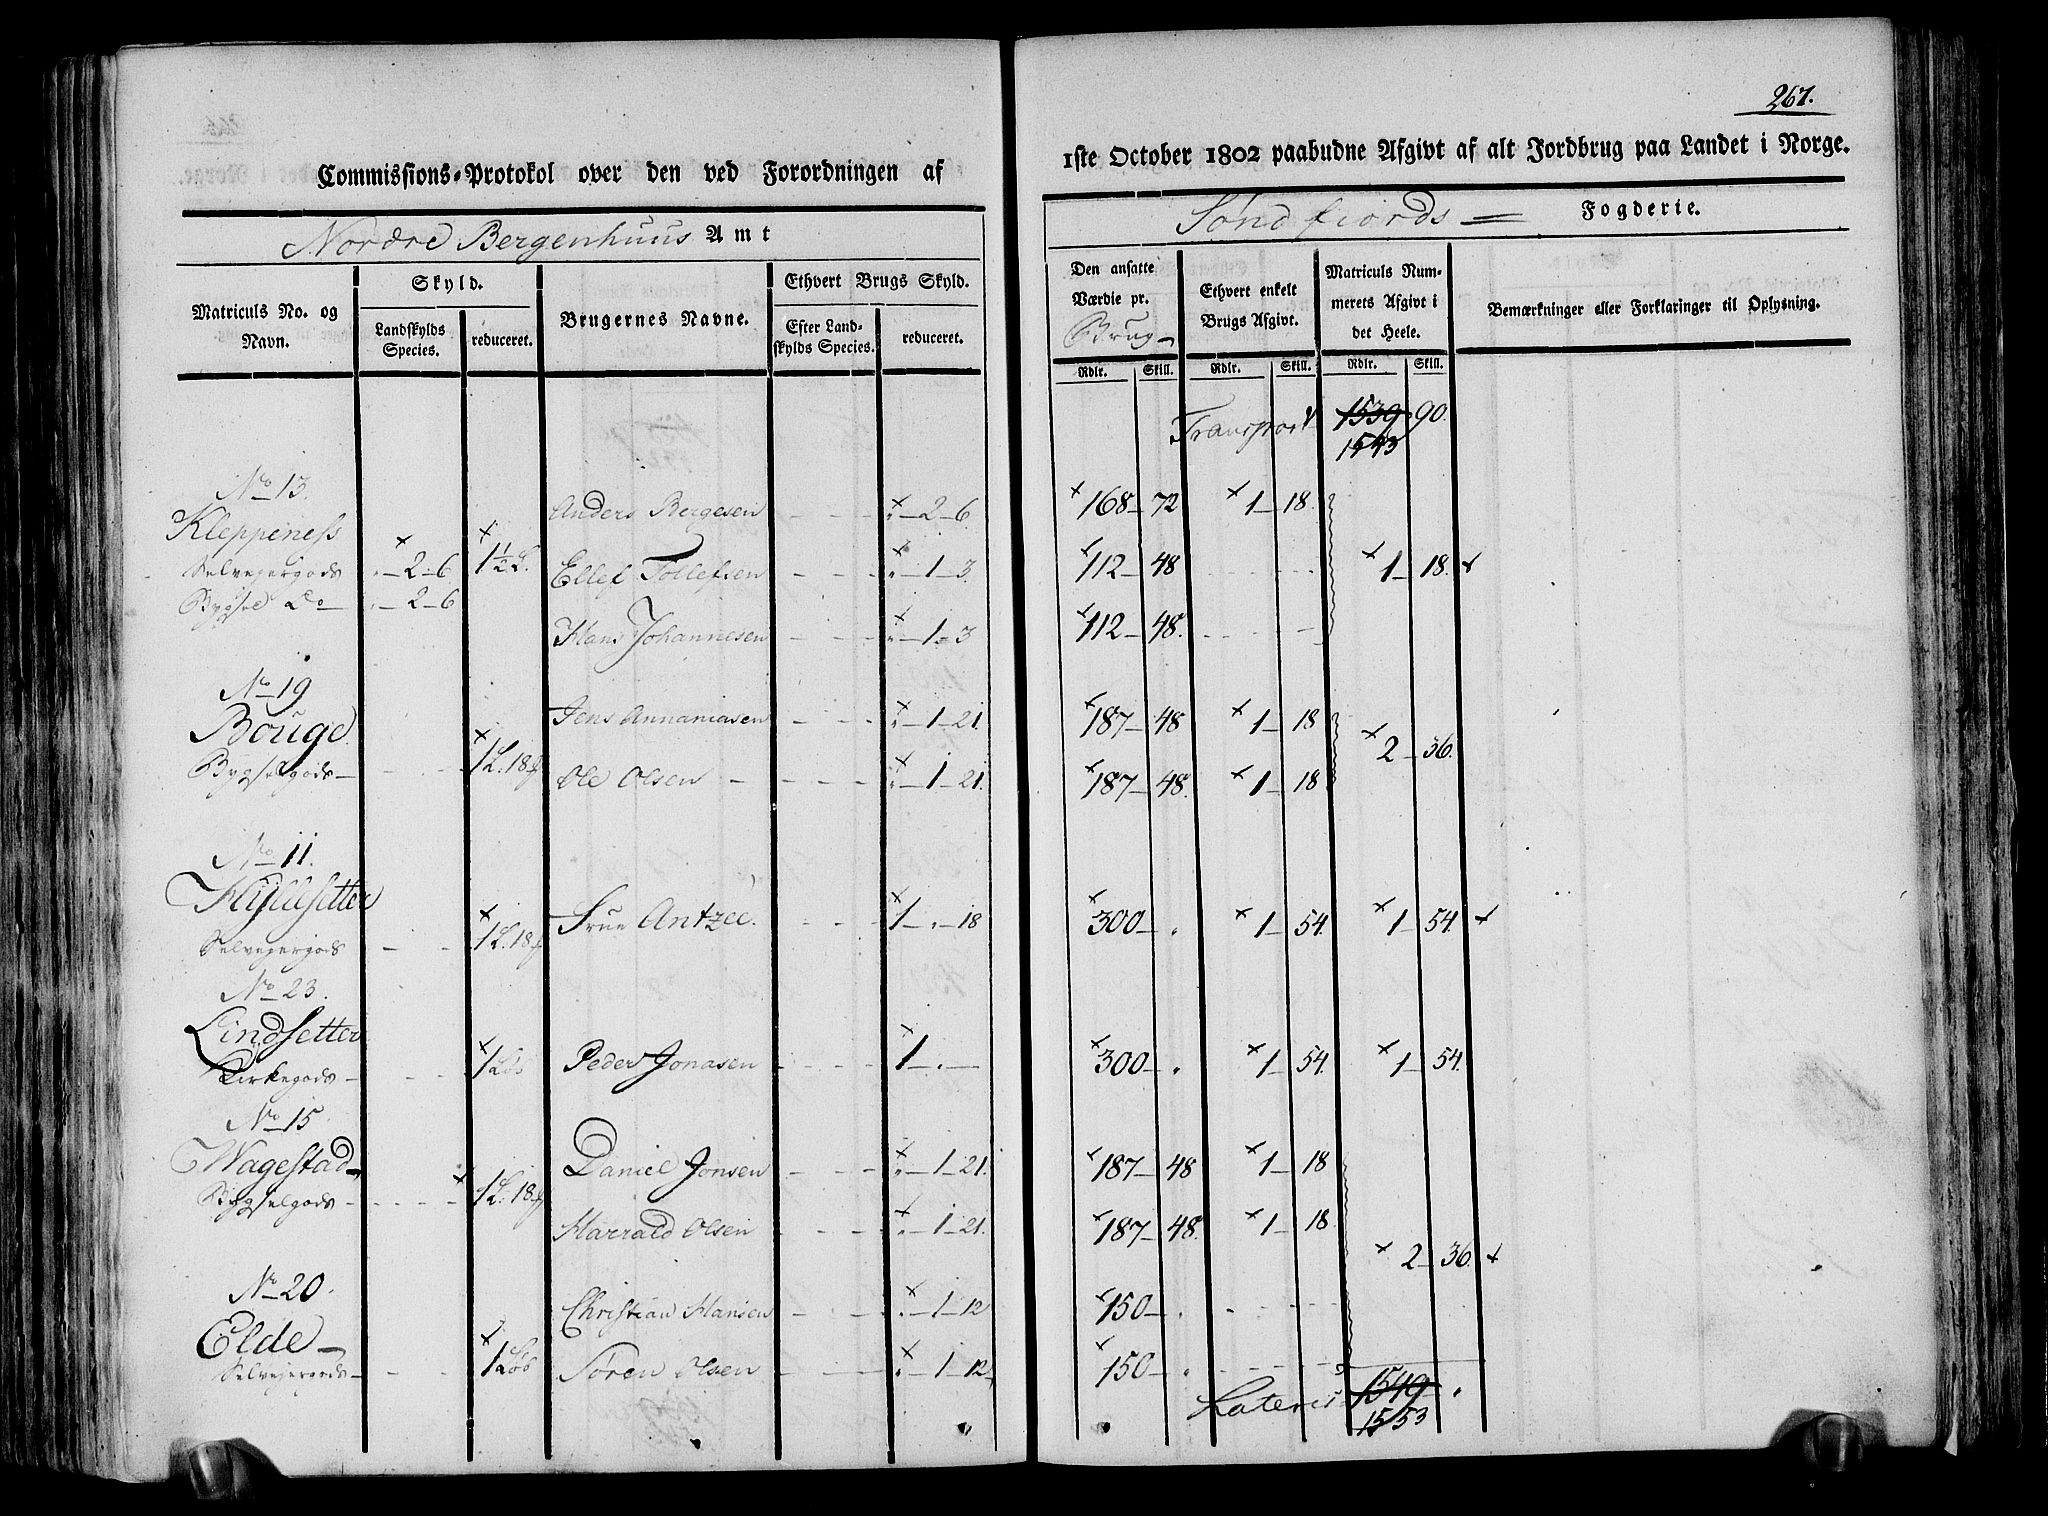 267.
Commissions-Protokol over den ved Forordningen af
1ste October 1802 paabudne Afgivt af alt Jordbrug paa Landet i Norge.
Nordre Bergenhuus Amt
Søndfiords Fogderie.
Matriculs No. og Navn.
Skyld.
Landskylds Species.
reduceret.
Brugernes Navne.
Ethvert Brugs Skyld.
Efter Landskylds Species.
reduceret.
Den ansatte Værdie pr. Brug
Ethvert enkelt Brugs Afgivt.
Matriculs Nummerets Afgivt i det Heele.
Bemærkninger eller Forklaringer til Oplysning.
Rdlr. Skill. Rdlr. Skill. Rdlr. Skill.
Transport 1539 90.
1543
No 13.
Kleppeness
Anders Bergesen 2-6 168-72 1-18
Selvejergods 2-6 1½ L. Ellef Tollefsen 1-3 112-48 1-18.
Bygsel Do 2-6
Hans Johannesen 1-3 112-48.
No 19
Bouge
Jens Annaniasen 1-21. 187-48 1-18 2-36.
Bygselgods 1 L. 18 Ole Olsen 1-21. 187-48. 1-18
No 11.
Selvejergods 1 L. 18 Frue Antzee. 1-18 300 1-54. 1-54.
No 23.
Lindsetter
Kirkegods 1 Peder Jonasen 1 300 1-54. 1-54.
No 15
Wagestad
Daniel Jonsen 1-21. 187-48 1-18
Bygselgods 1 L. 18 Harrald Olsen 1-21. 187-48. 1-18 2-36.
No 20.
Elde
Christian Hansen 1-12 150
Selvejergods 1 Løb Søren Olsen 1-12 150
Lateris 1549
1553